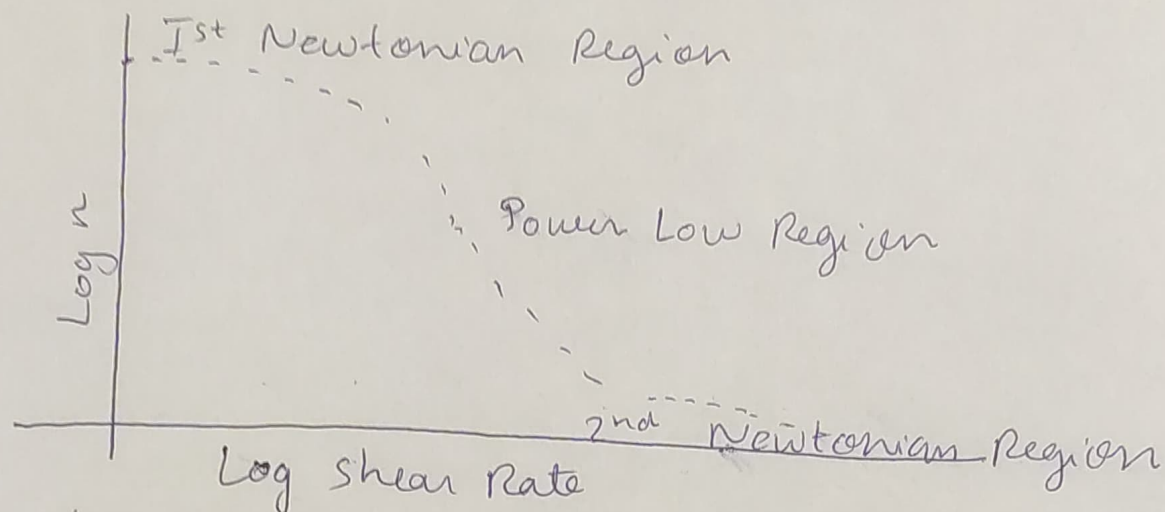 Ist Newtonian Region
Log n
Power Low Region
2nd Newtonian Region
Log Shear Rate